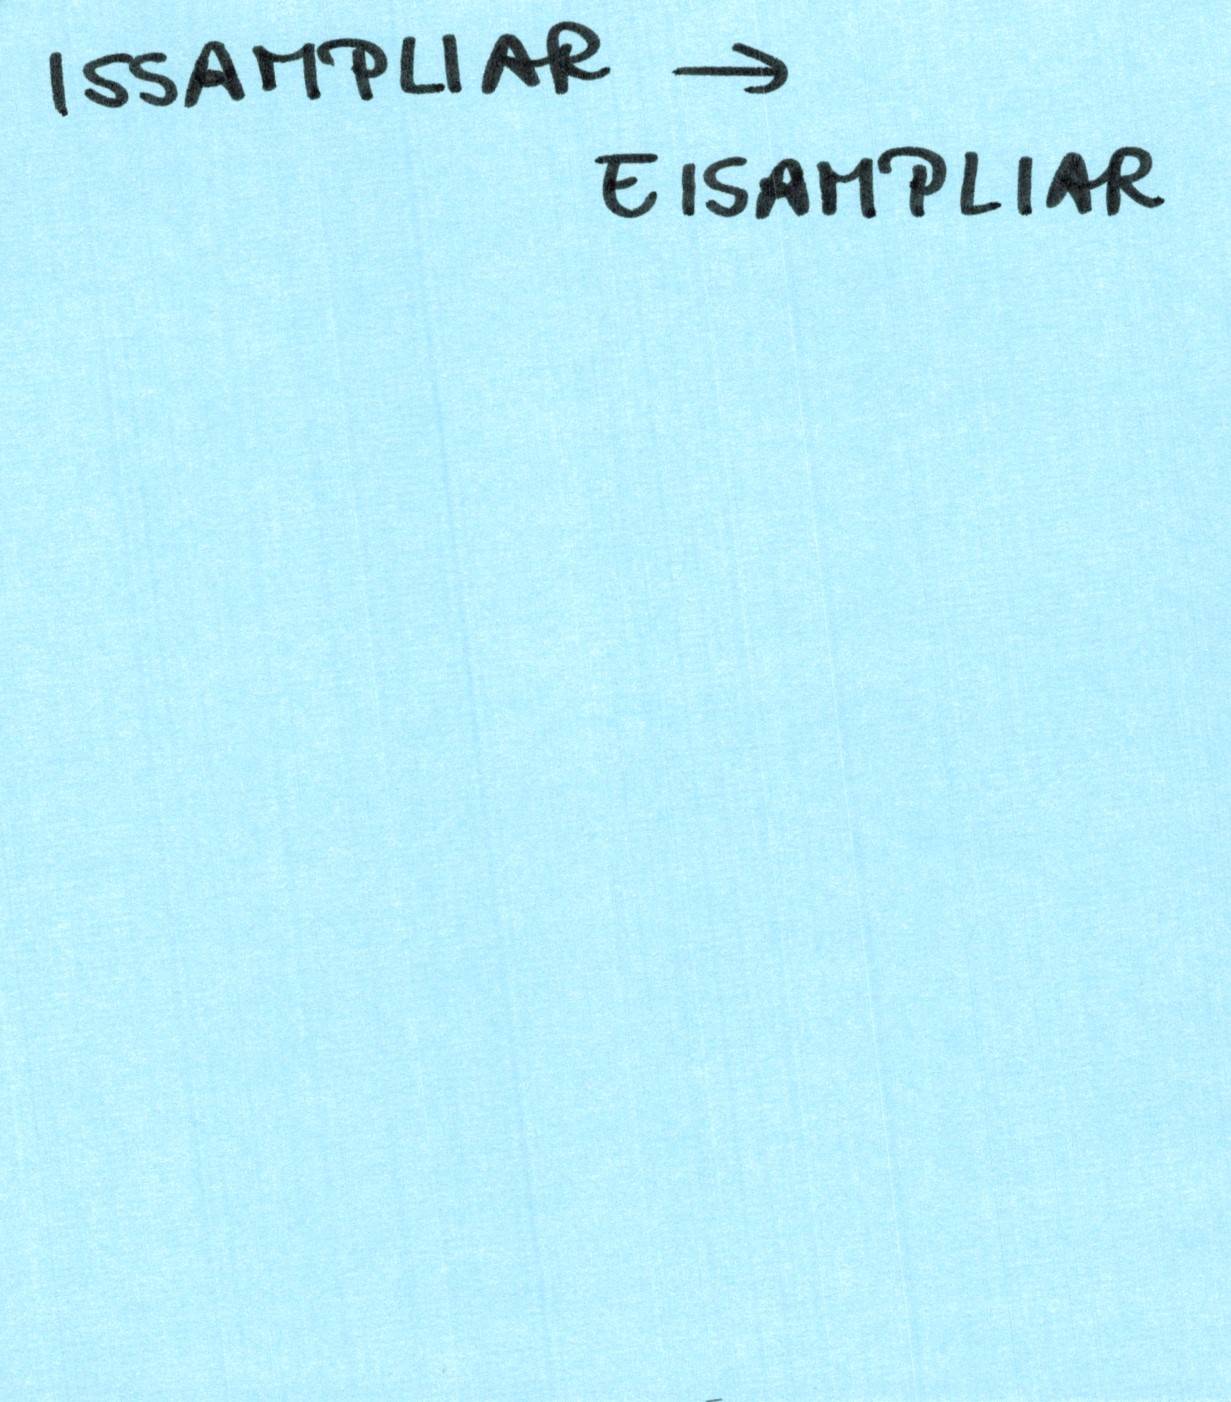 ISSAMPLIAR →
EISAMPLIAR